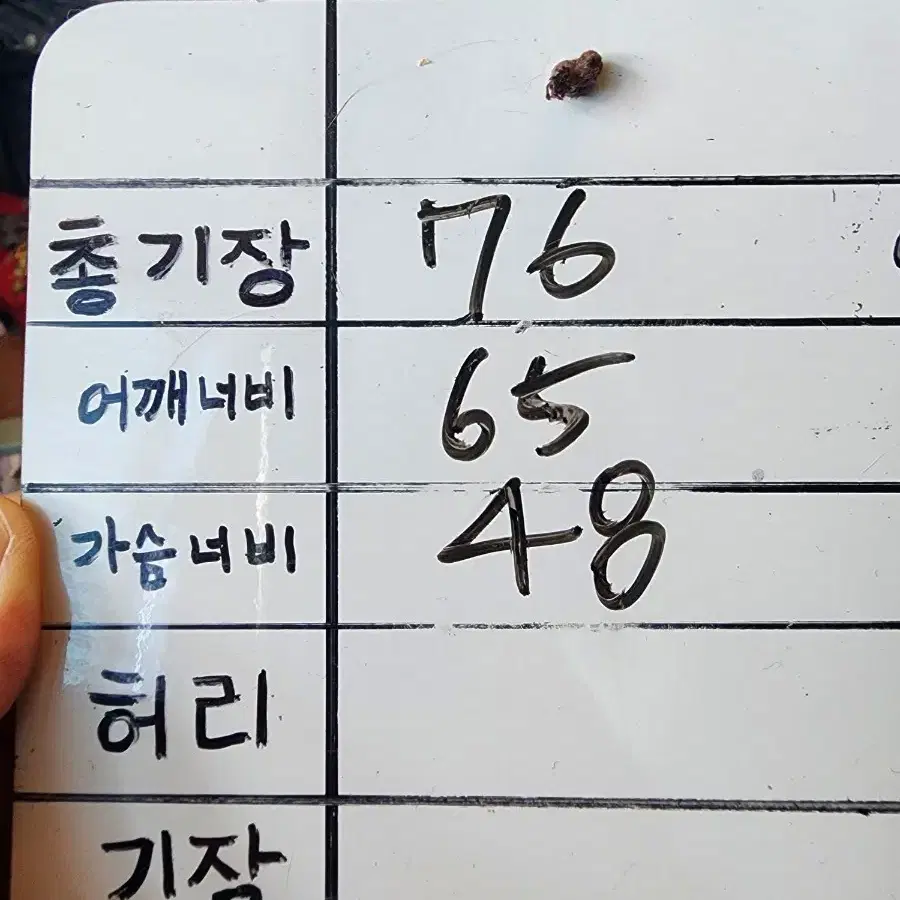 총기장 76
어깨너비 65
가슴너비 48
허리
기장